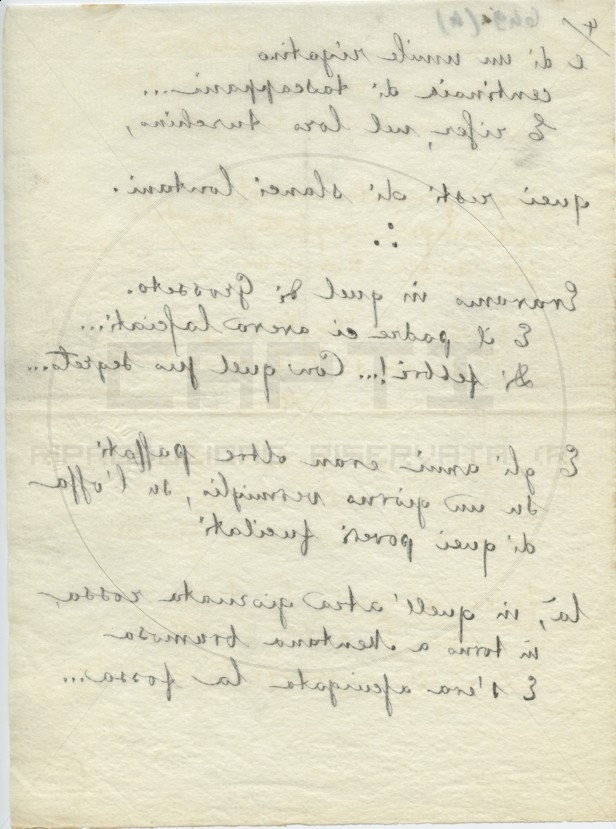 4/ 6498(4)
e di un umile rigatino
centinaia di tascappani....
E rifer, nel loro turchino,
quei resti di slanci lontani.
Eravamo in quel di Grosseto.
E il padre ci aveva lasciati...
Di febbri!... Con quel suo segreto...
E gli anni eran oltre passati
su un giorno vermiglio, su l'ossa
di quei poveri fucilati
là, in quell'atra giornata rossa,
in torno a Mentana brumosa
E s'era asciugata la fossa....
CARTE
RIPRODUZIONE RISERVATA